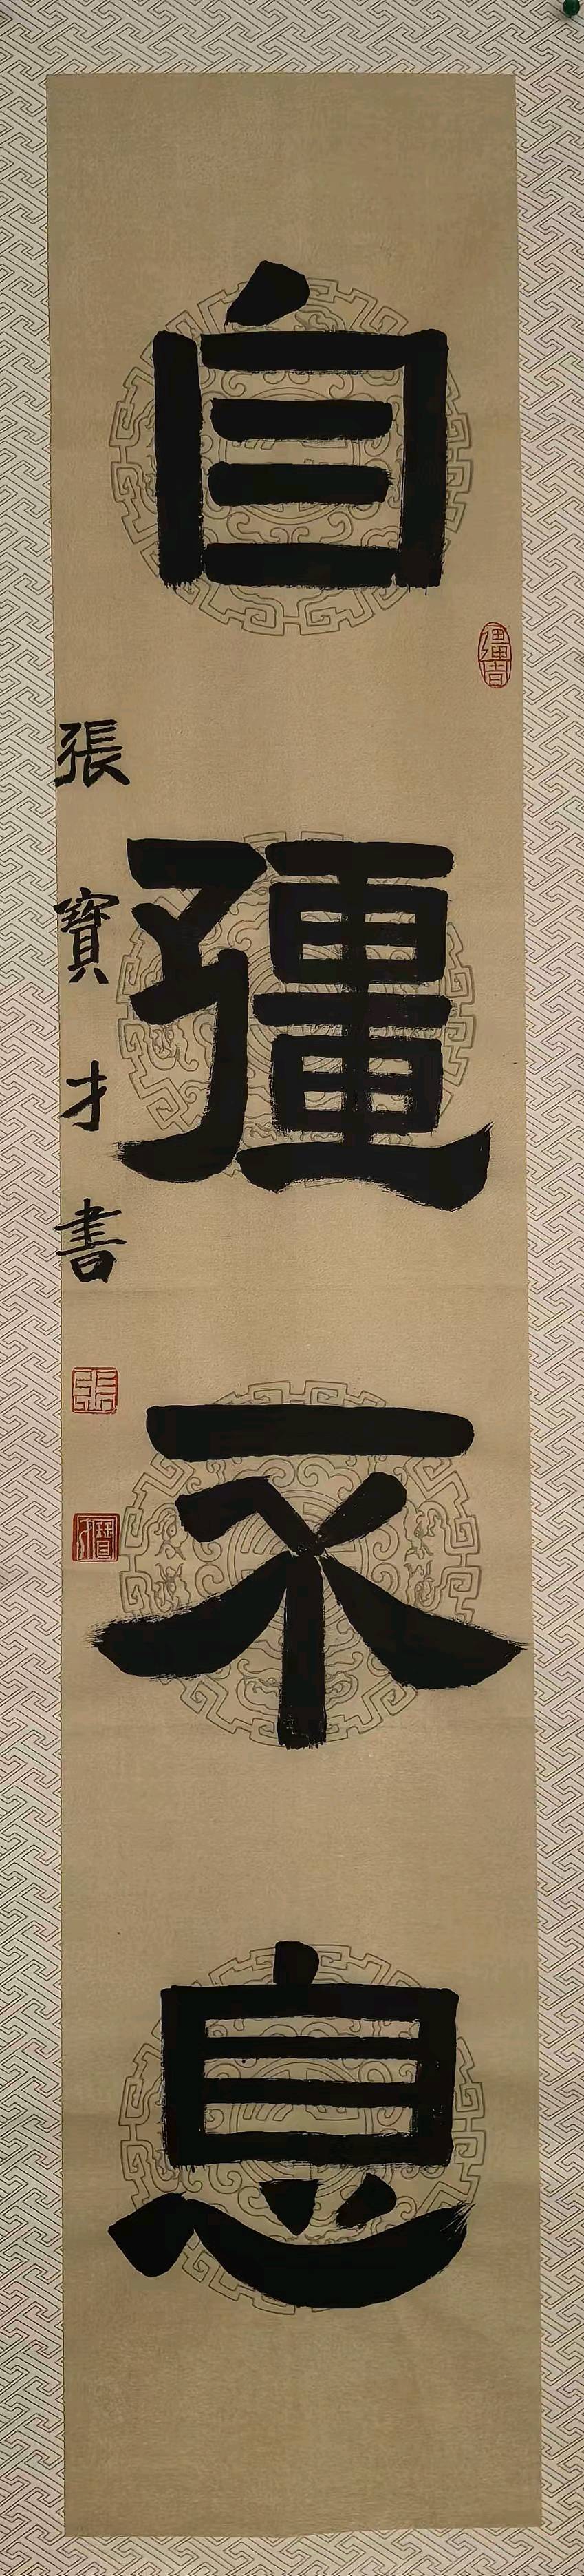 自彊不息
張寶才書
張
寶才